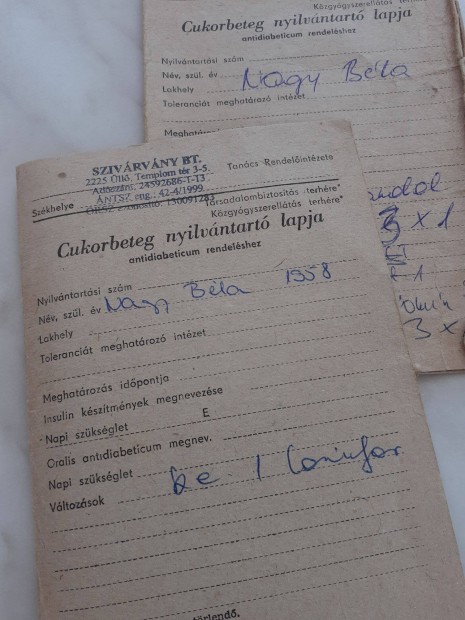 Közgyógyszerellátás terhére*
Cukorbeteg nyilvántartó lapja
antidiabeticum rendeléshez
Nyilvántartási szám
Név, szül. év Nagy Béla
Lakhely
Toleranciát meghatározó intézet
3 x 1
3 x
SZIVÁRVÁNY BT.
2225 Üllő, Templom tér 3-5.
Adószám: 24592686-1-13
ÁNTSZ eng.: 42-4/1999
Székhelye
Tanács Rendelőintézete
Társadalombiztosítás terhére*
Közgyógyszerellátás terhére*
Cukorbeteg nyilvántartó lapja
antidiabeticum rendeléshez
Nyilvántartási szám
Név, szül. év Nagy Béla 1958
Lakhely
Toleranciát meghatározó intézet
Meghatározás időpontja
Insulin készítmények megnevezése
Napi szükséglet E
Orális antidiabeticum megnev.
Napi szükséglet
Változások